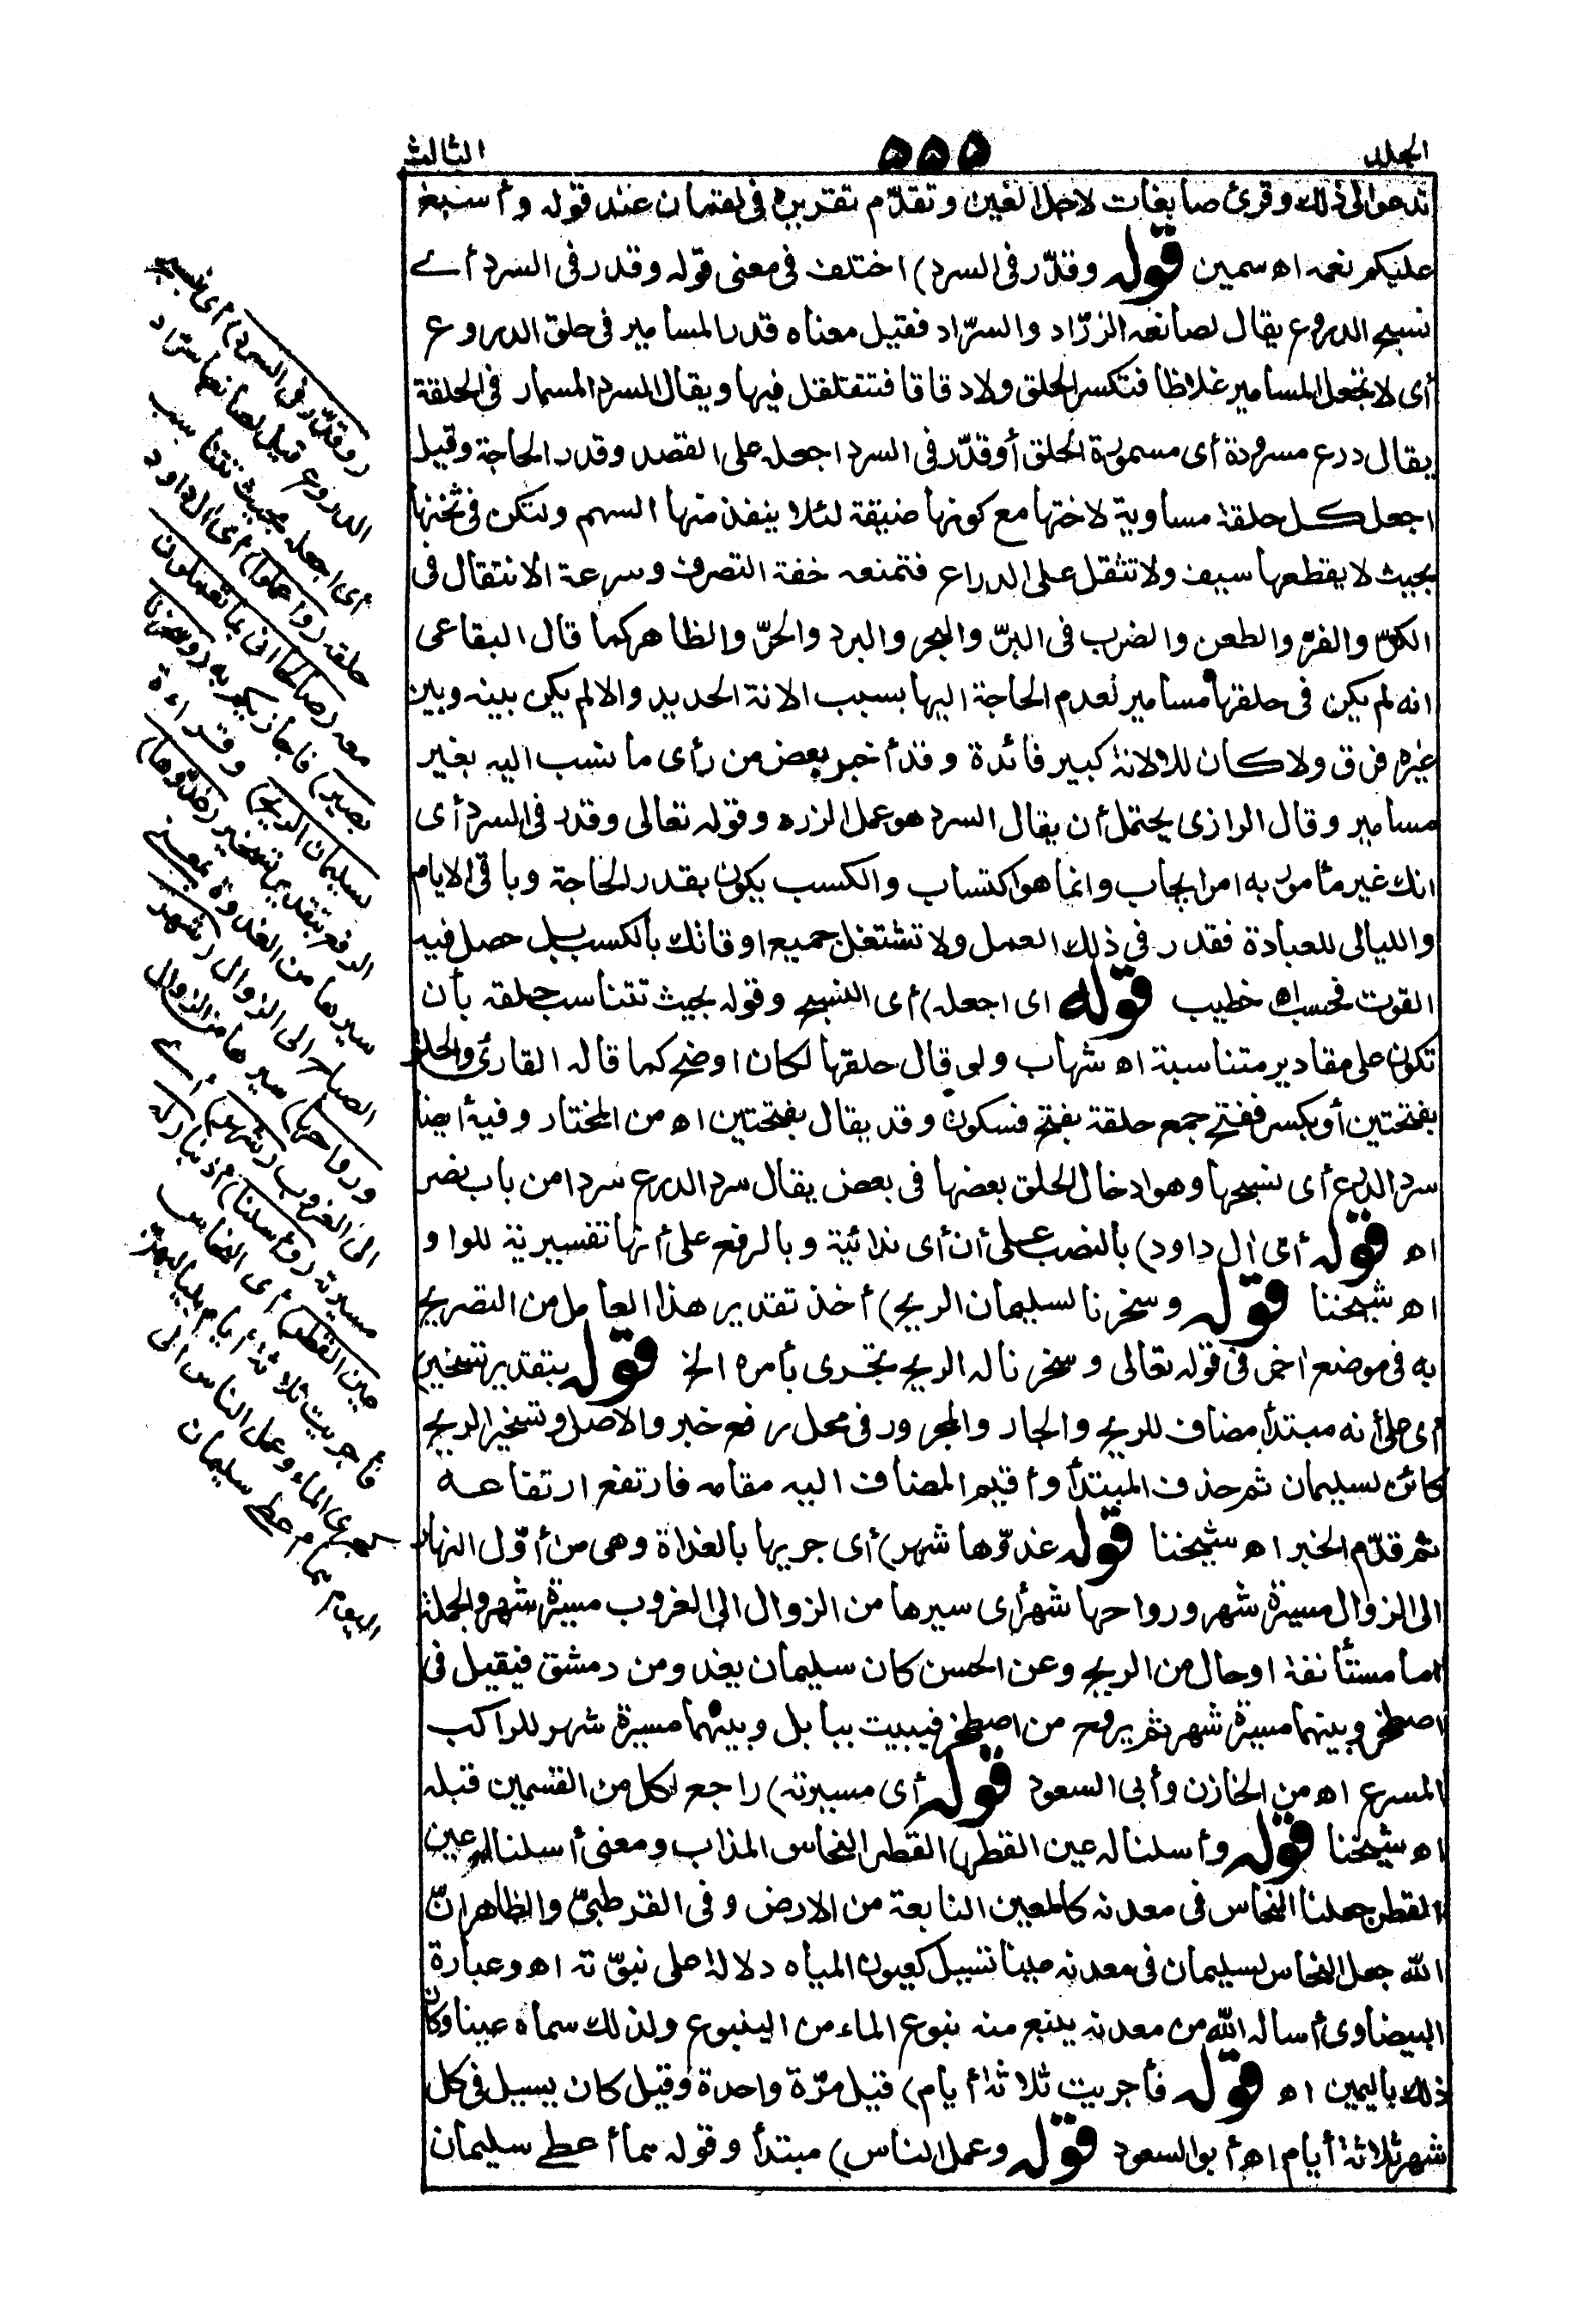 المجلد
٥٥٥
الثالث
تدعوا لى ذلك وقرئ صابغات لاجل الغين وتقدّم تقريره فى لقمان عند قوله وأسبغ
عليكم نعمه اه سمين قوله وقدّر فى السرد) اختلف فى معنى قوله وقدر فى السرد أى
نسج الدروع يقال لصانعه الزرّاد والسرّاد فقيل معناه قدر المسامير فى حلق الدروع
أى لا تجعل المسامير غلاظا فتكسر الحلق ولا دقاقا فتتقلقل فيها ويقال السرد المسمار فى الحلقة
يقال درع مسرودة أى مسمورة الحلق أو قدّر فى السرد اجعله على القصد وقدر الحاجة وقيل
اجعل كل حلقة مساوية لاختها مع كونها ضيقة لئلا ينفذ منها السهم ولتكن فى ثخنها
بحيث لا يقطعها سيف ولا تثقل على الدراع فتمنعه خفة التصرف وسرعة الانتقال فى
الكرّ والفرّ والطعن والضرب فى البرّ والبحر والبرد والحرّ والظاهر كما قال البقاعى
انه لم يكن فى حلقها مسامير لعدم الحاجة اليها بسبب الانة الحديد والا لم يكن بينه وبين
غيره فرق ولا كان للالانة كبير فائدة وقد أخبر بعض من رأى ما نسب اليه بغير
مسامير وقال الرازى يحتمل أن يقال السرد هو عمل الزرد وقوله تعالى وقدر فى السرد أى
انك غير مأمور به امر ايجاب وانما هو اكتساب والكسب يكون بقدر الحاجة وباقى الايام
والليالى للعبادة فقدر فى ذلك العمل ولا تشتغل جميع اوقاتك بالكسب بل حصل فيه
القوت فحسب اه خطيب قوله اى اجعله) أى النسج وقوله بحيث تتناسب حلقه بأن
تكون على مقادير متناسبة اه شهاب ولو قال حلقها لكان اوضح كما قاله القارئ والحلق
بفتحتين أو بكسر ففتح جمع حلقة بفتح فسكون وقد يقال بفتحتين اه من المختار وفيه أيضا
سرد الدرع أى نسجها وهو ادخال الحلق بعضها فى بعض يقال سرد الدرع سردا من باب نصر
اه قوله أى آل داود) بالنصب على أن أى ندائية وبالرفع على أنها تفسيرية للواو
اه شيخنا قوله وسخرنا لسليمان الريح) أخذ تقدير هذا العامل من التصريح
به فى موضع اخر فى قوله تعالى وسخرنا له الريح تجرى بأمره الخ قوله بتقدير تسخير)
أى على أنه مبتدأ مضاف للريح والجار والمجرور فى محل رفع خبر والاصل وتسخير الريح
كائن لسليمان ثم حذف المبتدأ وأقيم المضاف اليه مقامه فارتفع ارتفاعه
ثم قدّم الخبر اه شيخنا قوله غدوّها شهر) أى جريها بالغداة وهى من أوّل النهار
الى الزوال مسيرة شهر ورواحها شهر أى سيرها من الزوال الى الغروب مسيرة شهر والجملة
اما مستأنفة اوحال من الريح وعن الحسن كان سليمان يغدو من دمشق فيقيل فى
اصطخر وبينهما مسيرة شهر ثم يروح من اصطخر فيبيت ببابل وبينهما مسيرة شهر للراكب
المسرع اه من الخازن وأبى السعود قوله أى مسيرته) راجع لكل من القسمين قبله
اه شيخنا قوله وأسلنا له عين القطر) القطر النحاس المذاب ومعنى أسلنا له عين
القطر جعلنا النحاس فى معدنه كالمعين النابعة من الارض وفى القرطبىّ والظاهر انّ
الله جعل النحاس لسليمان فى معدنه عينا تسيل كعيون المياه دلالة على نبوّته اه وعبارة
البيضاوى أساله الله من معدنه ينبع منه نبوع الماء من الينبوع ولذلك سماه عينا وكان
ذلك باليمن اه قوله فأجريت ثلاثة أيام) قيل مرّة واحدة وقيل كان يسيل فى كل
شهر ثلاثة أيام اه أبو السعود قوله وعمل الناس) مبتدأ وقوله مما أعطى سليمان
(وقدّر فى السرد) أى نسج
الدروع قيل لصانعها سرّاد
أى اجعله بحيث تتناسب
حلقه (واعملوا) أى آل داود
معه (صالحا انى بما تعملون
بصير) فأجازيكم به (و) سخرنا
لسليمان الريح) وقراءة
الرفع بتقدير تسخير (غدوّها)
سيرها من الغدوة بمعنى
الصباح الى الزوال (شهر
ورواحها) سيرها من الزوال
الى الغروب (شهر) أى
مسيرته (وأسلنا) أذبنا (له
عين القطر) أى النحاس
فأجريت ثلاثة أيام بلياليهن
كجرى الماء وعمل الناس الى
اليوم مما أعطى سليمان